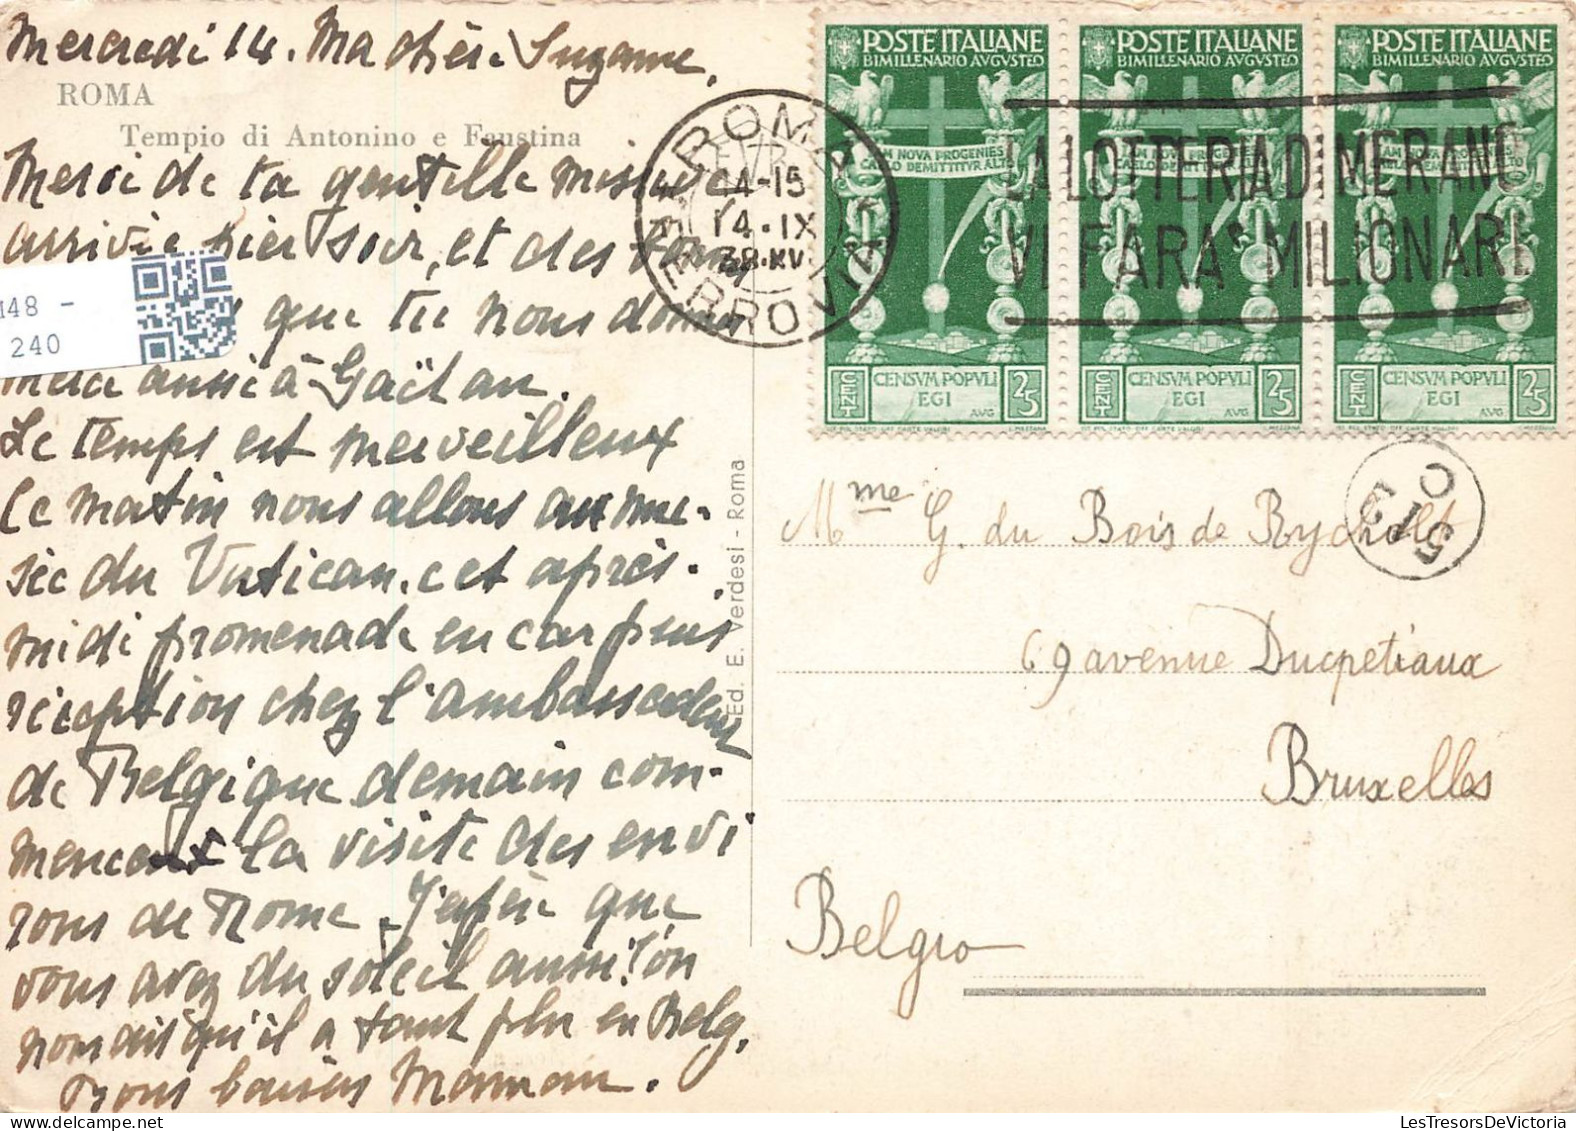 Mercredi 14. Ma chère Suzanne,
ROMA
Tempio di Antonino e Faustina
Merci de ta gentille missive
arrivée hier soir, et des
que tu nous donnes
merci aussi à Gaëtan.
Le temps est merveilleux
Ce matin nous allons au mu-
sée du Vatican, et cet après-
midi promenade en car puis
réception chez l'ambassadeur
de Belgique demain com-
mencent la visite des envi
rons de Rome. J'espère que
vous avez du soleil aussi! on
nous dit qu'il a tant plu en Belg.
Bons baisers Maman.
M48 -
240
Ed. E. Verdesi - Roma
POSTE ITALIANE
BIMILLENARIO AVGVSTEO
IAM NOVA PROGENIES
CAELO DEMITTITVR ALTO
CENSVM POPVLI
EGI
AVG
CENT 25
POSTE ITALIANE
BIMILLENARIO AVGVSTEO
CENSVM POPVLI
EGI
AVG
CENT 25
POSTE ITALIANE
BIMILLENARIO AVGVSTEO
CENSVM POPVLI
EGI
AVG
CENT 25
ROMA
FERROVIA
14-15
14·IX
38·XVI
LA LOTTERIA DI MERANO
VI FARA' MILIONARI
Mme G. du Bois de Ryckholt
69 avenue Ducpetiaux
Bruxelles
Belgio
www.LesTresorsDeVictoria.com